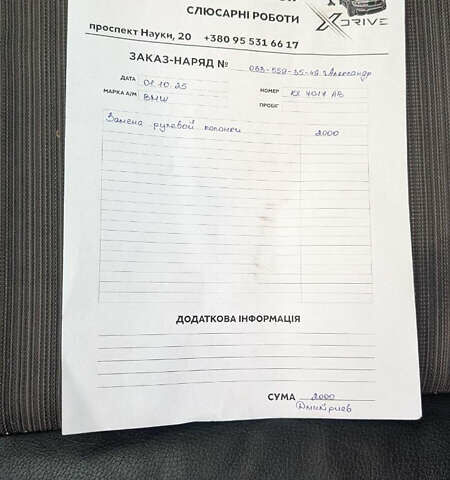 СЛЮСАРНІ РОБОТИ
XDRIVE
проспект Науки, 20 +380 95 531 66 17
ЗАКАЗ-НАРЯД № 063-559-35-49 Александр
ДАТА 01.10.25 НОМЕР КХ 4014 АВ
МАРКА А/М BMW ПРОБІГ
Замена рулевой колонки 2000
ДОДАТКОВА ІНФОРМАЦІЯ
СУМА 2000
Дмитриев